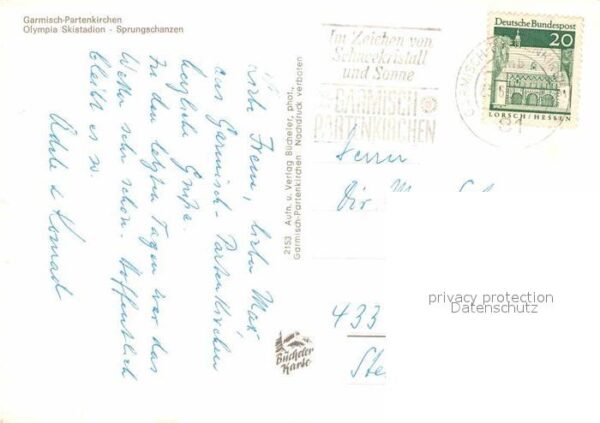 Garmisch-Partenkirchen
Olympia Skistadion - Sprungschanzen
Im Zeichen von
Schneekristall
und Sonne
GARMISCH
PARTENKIRCHEN
Deutsche Bundespost
20
LORSCH/HESSEN
81
2153 Aufn. u. Verlag Bücheler, phot.,
Garmisch-Partenkirchen Nachdruck verboten
lieber Max,
aus Garmisch-Partenkirchen
herzliche Grüße.
In den letzten Tagen war das
Wetter sehr schön. Hoffentlich
bleibt es so.
Adele & Konrad
Herrn
Dir.
433
Bücheler
Karte
privacy protection
Datenschutz